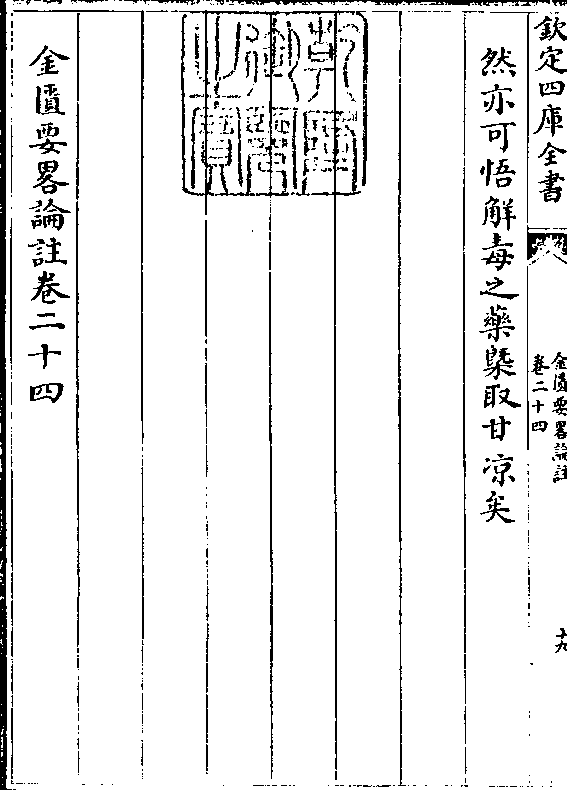 欽定四庫全書
金匱要畧論註
卷二十四
十九
然亦可悟解毒之藥槩取甘凉矣
乾隆御覽之寶
金匱要畧論註卷二十四